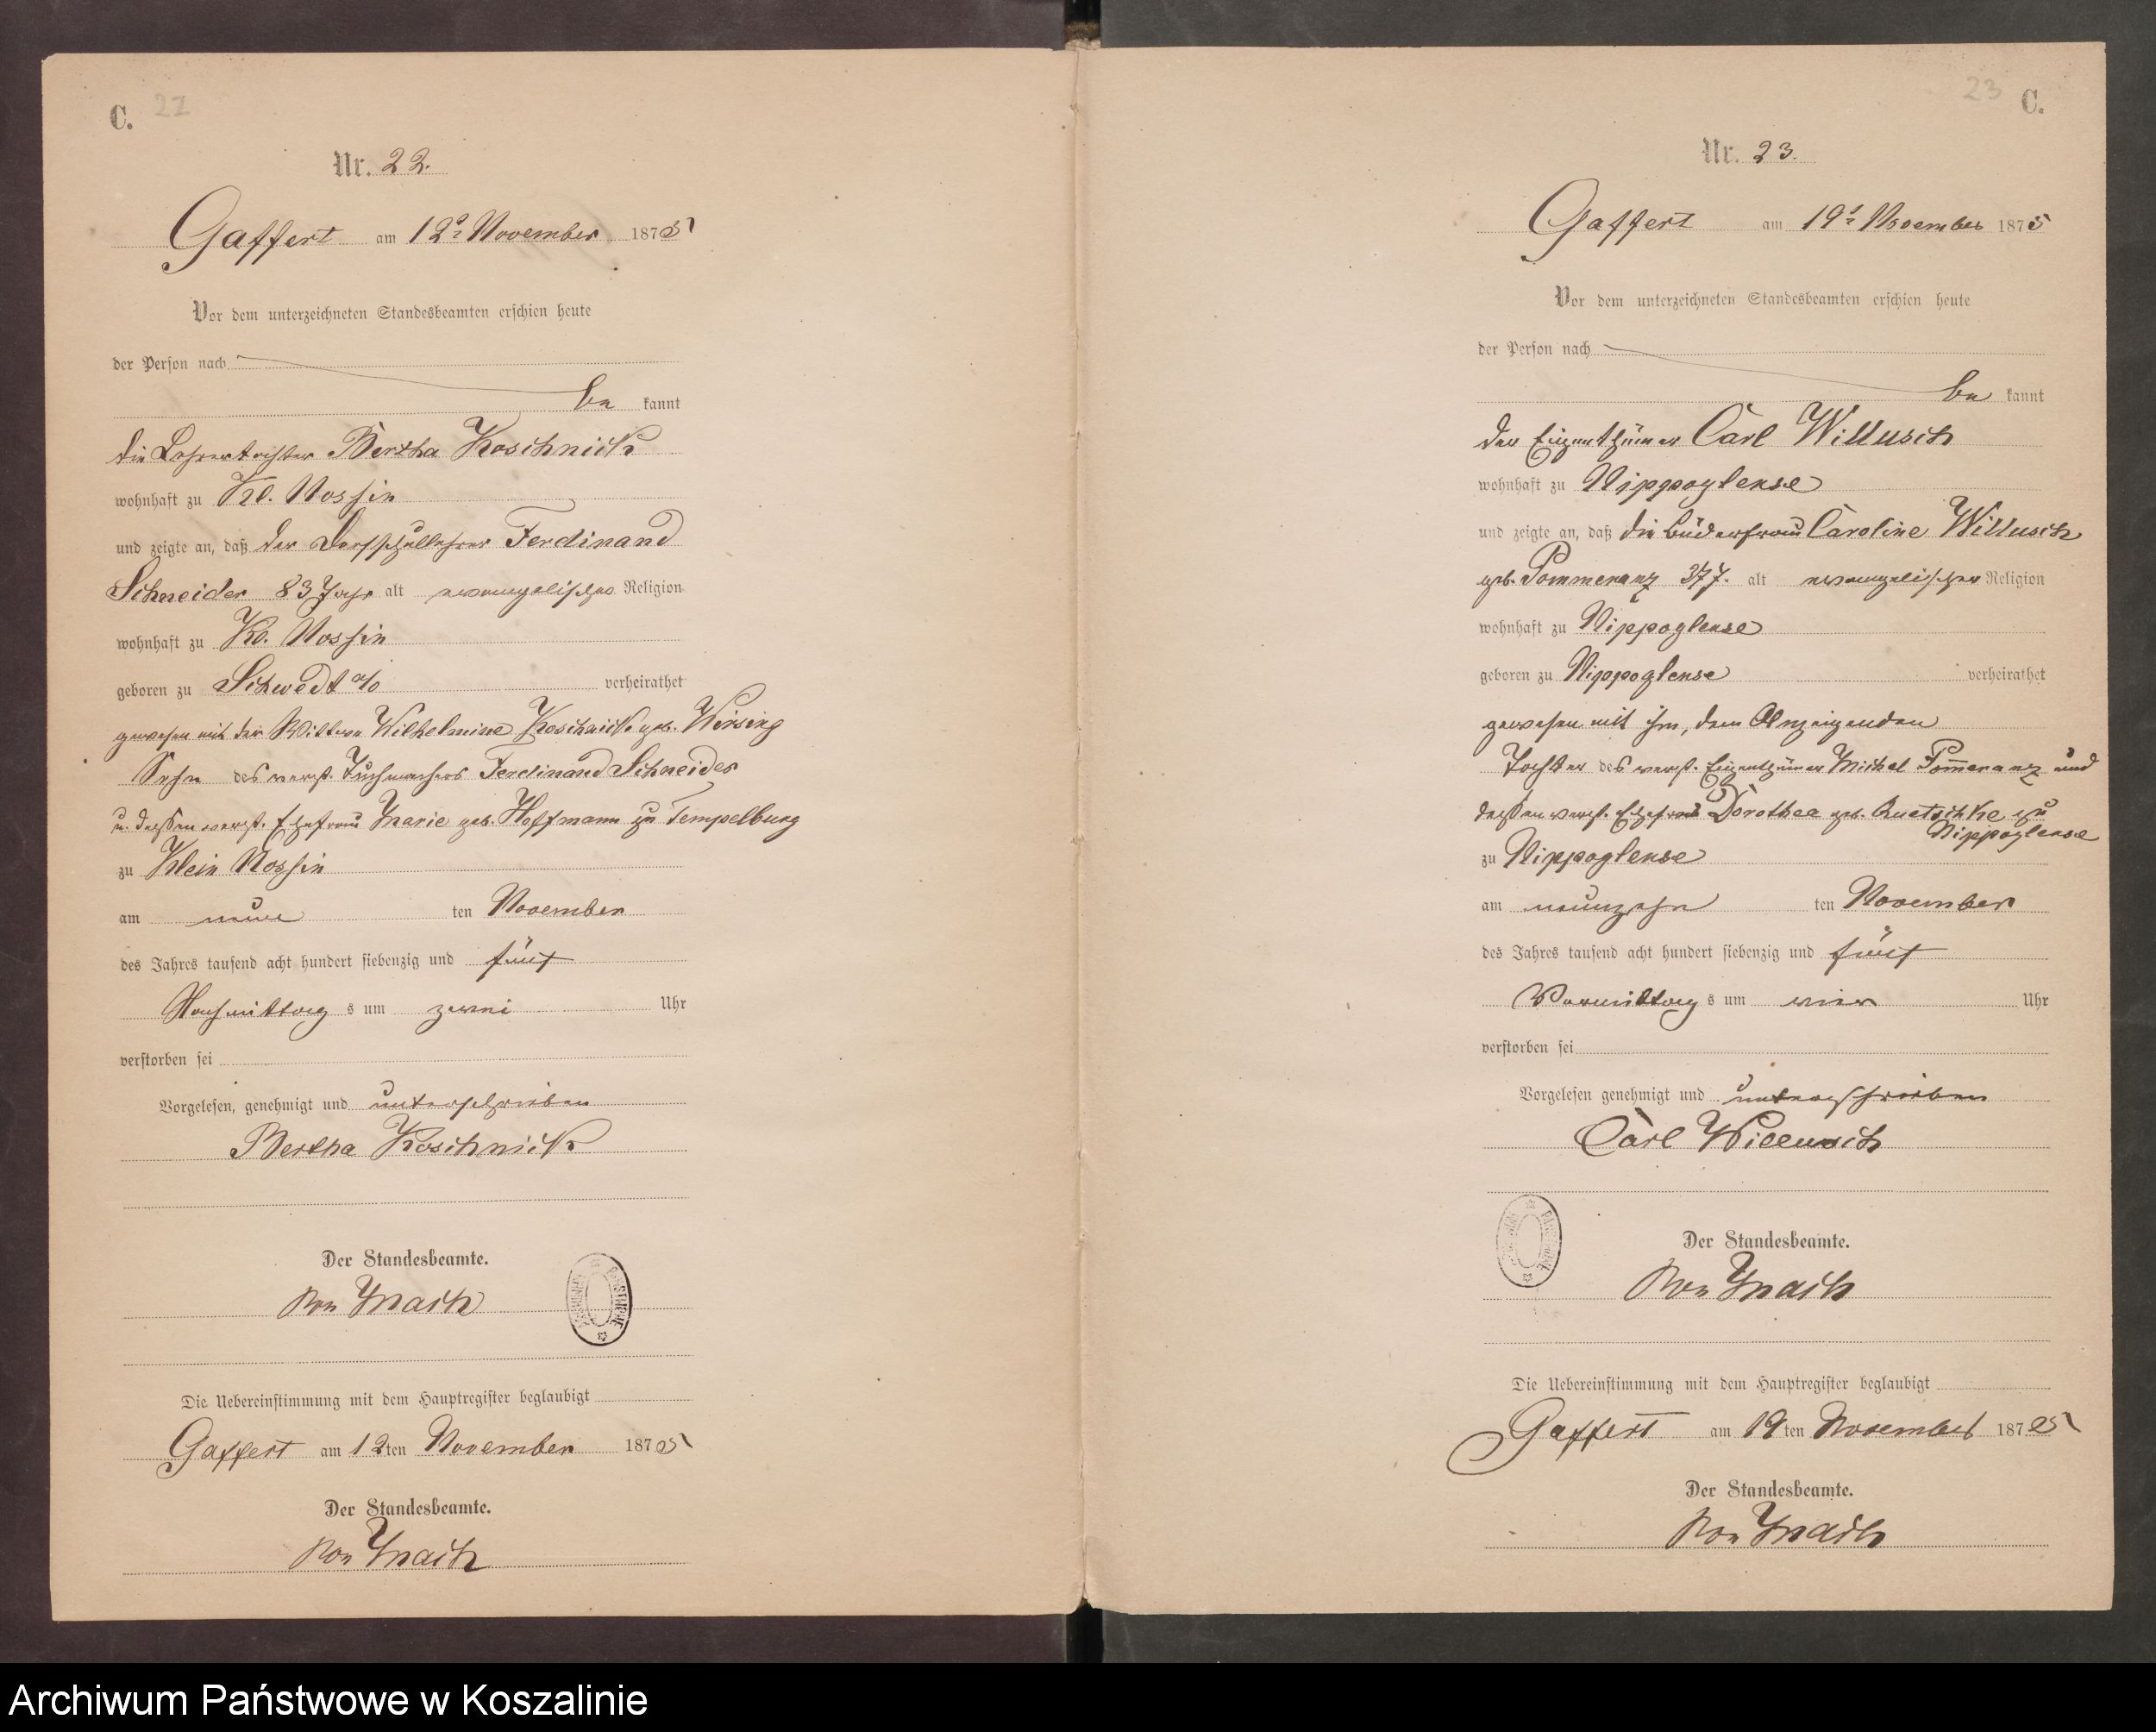 C. 22
Nr. 22.
Gaffert am 12t November 1875
Vor dem unterzeichneten Standesbeamten erschien heute
der Person nach
be kannt
die Lehrertochter Bertha Koschnick
wohnhaft zu Kl. Nossin
und zeigte an, daß der Dorfschullehrer Ferdinand
Schneider 83 Jahr alt evangelischer Religion
wohnhaft zu Kl. Nossin
geboren zu Schwedt a/O verheirathet
gewesen mit der Wittwe Wilhelmine Koschnick geb. Wirsing
Sohn des verst. Tuchmachers Ferdinand Schneider
u. dessen verst. Ehefrau Marie geb. Hoffmann zu Tempelburg
zu Klein Nossin
am neun ten November
des Jahres tausend acht hundert siebenzig und fünf
Nachmittag s um zwei Uhr
verstorben sei
Vorgelesen, genehmigt und unterschrieben
Bertha Koschnick
Der Standesbeamte.
von Mach
Die Uebereinstimmung mit dem Hauptregister beglaubigt
Gaffert am 12ten November 1875
Der Standesbeamte.
von Mach
23 C.
Nr. 23.
Gaffert am 19t November 1875
Vor dem unterzeichneten Standesbeamten erschien heute
der Person nach
be kannt
der Eigenthümer Carl Willusch
wohnhaft zu Nippoglense
und zeigte an, daß die Büdnerfrau Caroline Willusch
geb. Pommeranz alt evangelischer Religion
wohnhaft zu Nippoglense
geboren zu Nippoglense verheirathet
gewesen mit ihm, dem Anzeigenden
Tochter des verst. Eigenthümer Michel Pom̅eranz und
dessen verst. Ehefrau Dorothea geb. Quetschke zu
Nippoglense
zu Nippoglense
am neunzehn ten November
des Jahres tausend acht hundert siebenzig und fünf
Vormittag s um vier Uhr
verstorben sei
Vorgelesen genehmigt und unterschrieben
Carl Willusch
Der Standesbeamte.
von Mach
Die Uebereinstimmung mit dem Hauptregister beglaubigt
Gaffert am 19ten November 1875
Der Standesbeamte.
von Mach
Archiwum Państwowe w Koszalinie